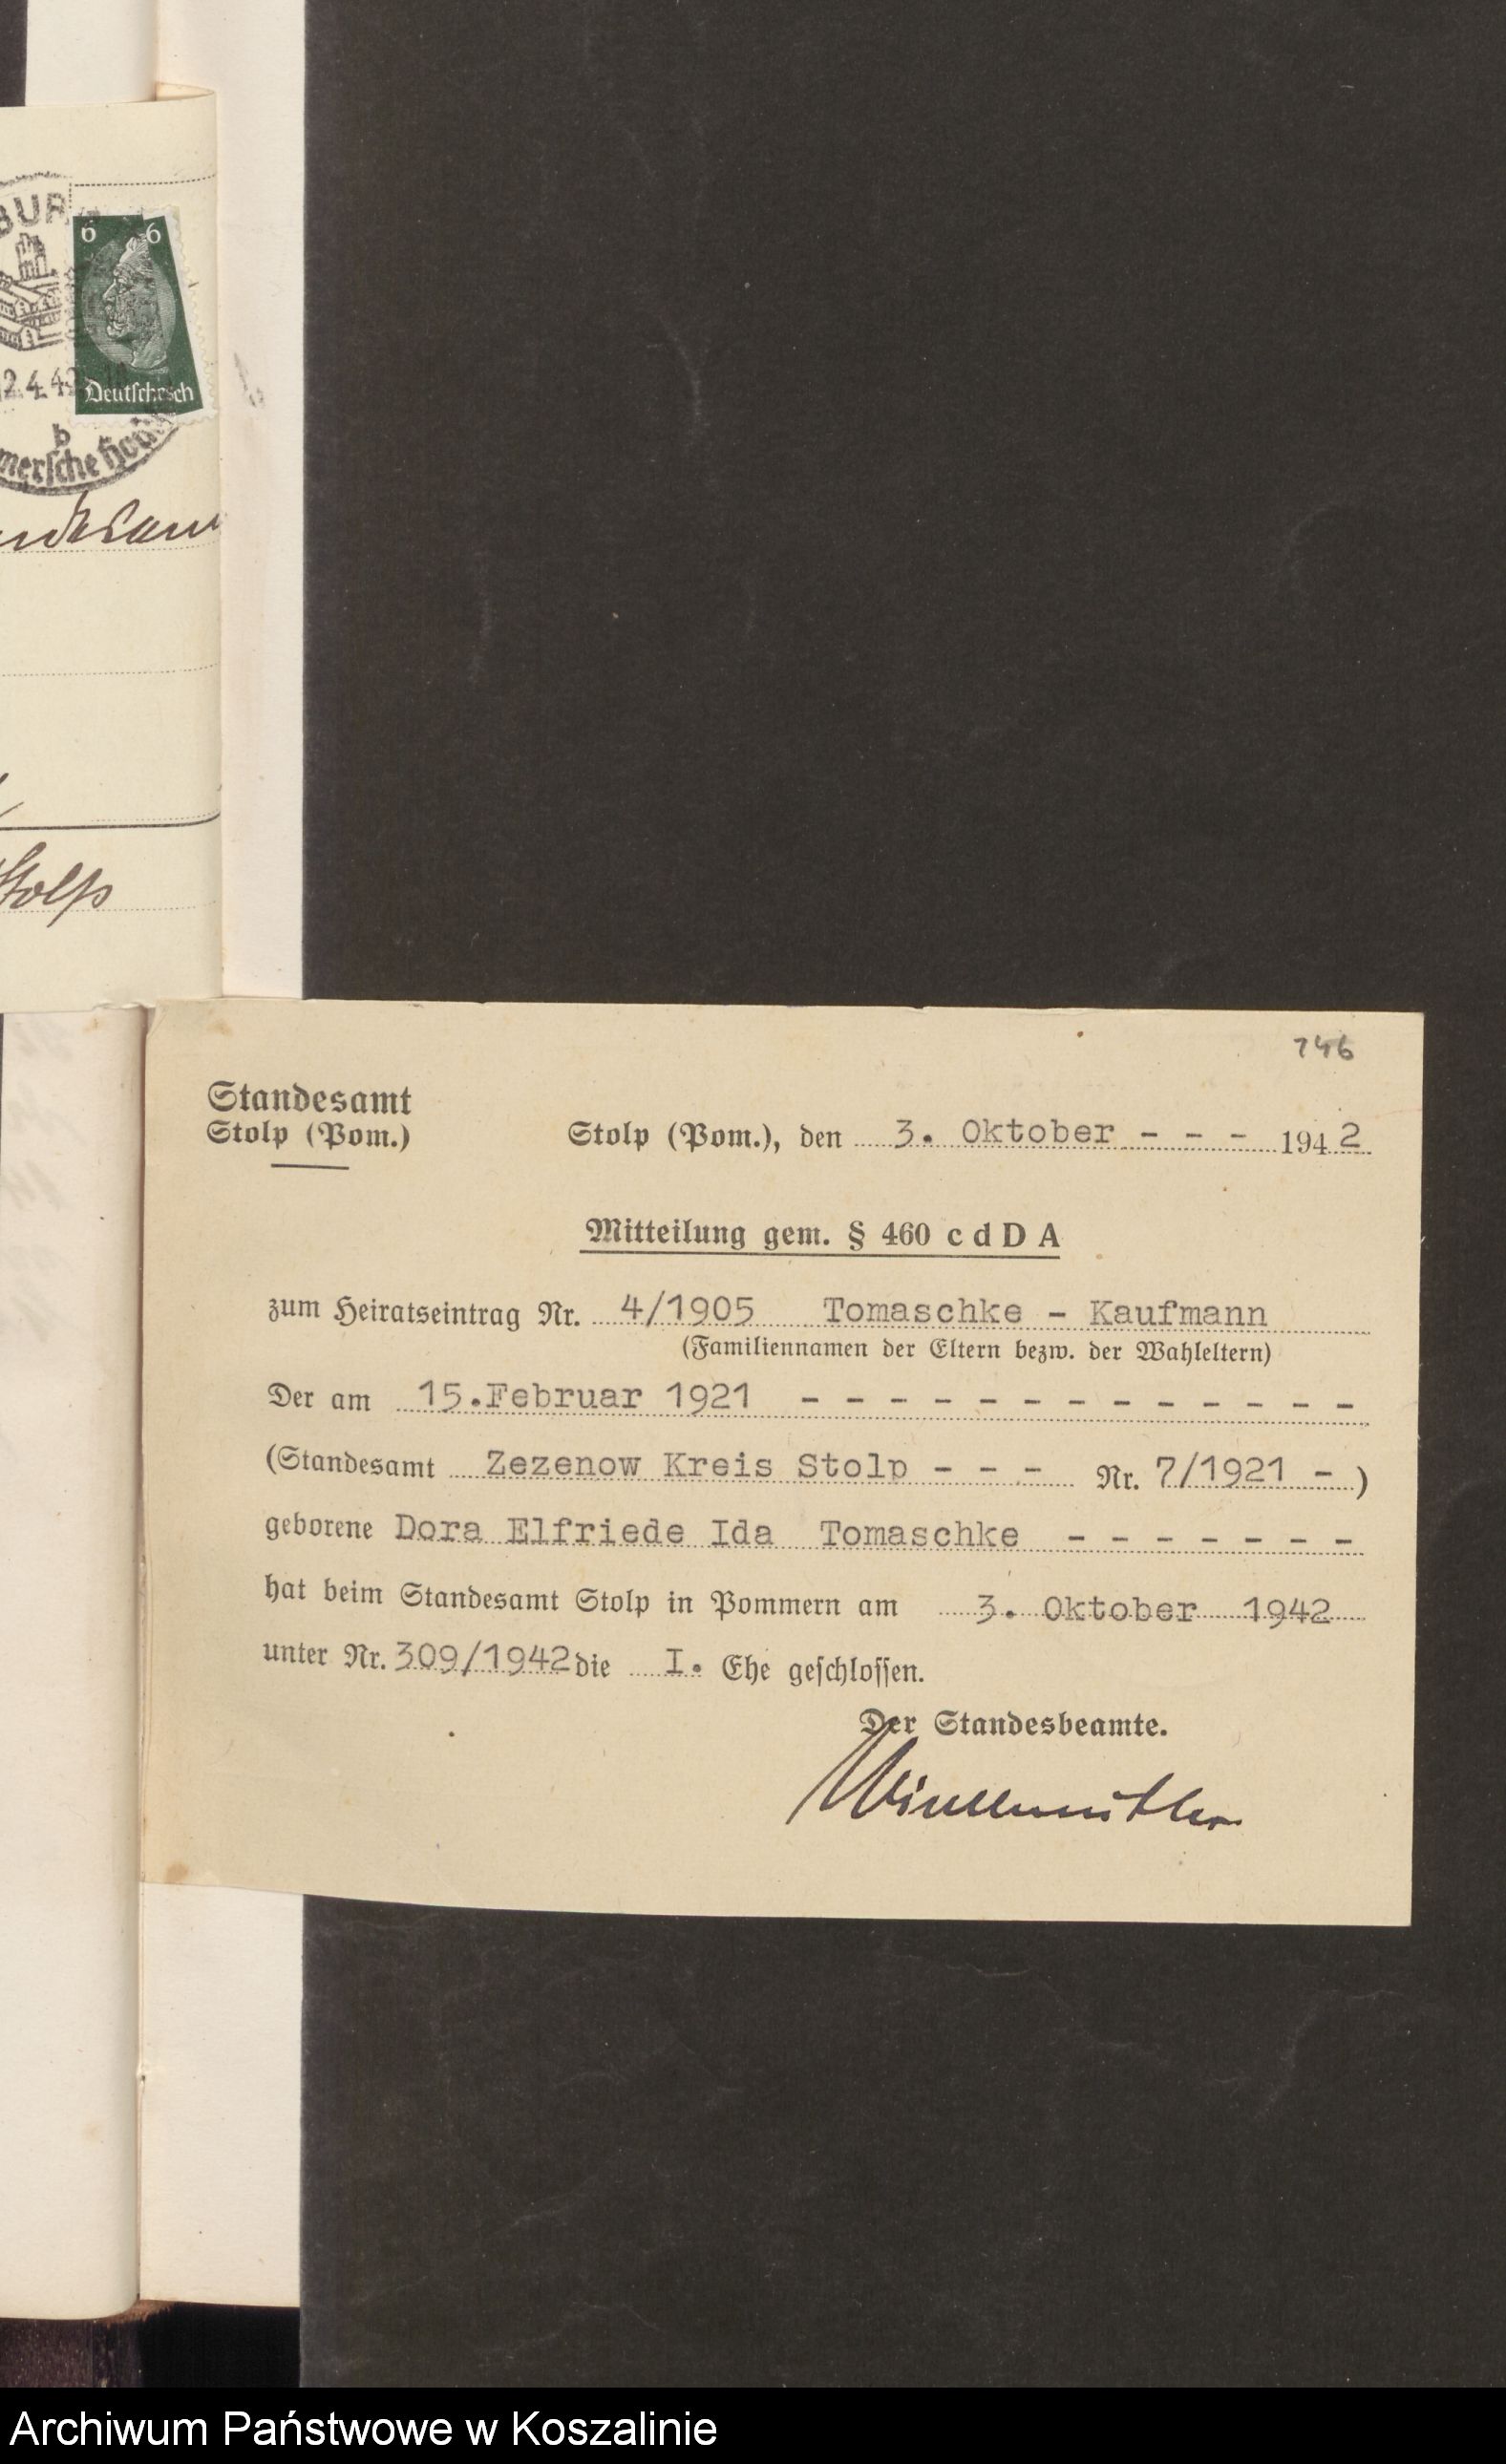 BUR
6 6
Deutsches ch
2.4.4
b
mersche
Stolp
746
Standesamt
Stolp (Pom.)
Stolp (Pom.), den 3. Oktober - - - 1942
Mitteilung gem. § 460 c d D A
zum Heiratseintrag Nr. 4/1905 Tomaschke - Kaufmann
(Familiennamen der Eltern bezw. der Wahleltern)
Der am 15.Februar 1921 - - - - - - - - - - - - -
(Standesamt Zezenow Kreis Stolp - - - Nr. 7/1921 - )
geborene Dora Elfriede Ida Tomaschke - - - - - - -
hat beim Standesamt Stolp in Pommern am 3. Oktober 1942
unter Nr. 309/1942 die I. Ehe geschlossen.
Der Standesbeamte.
Archiwum Państwowe w Koszalinie